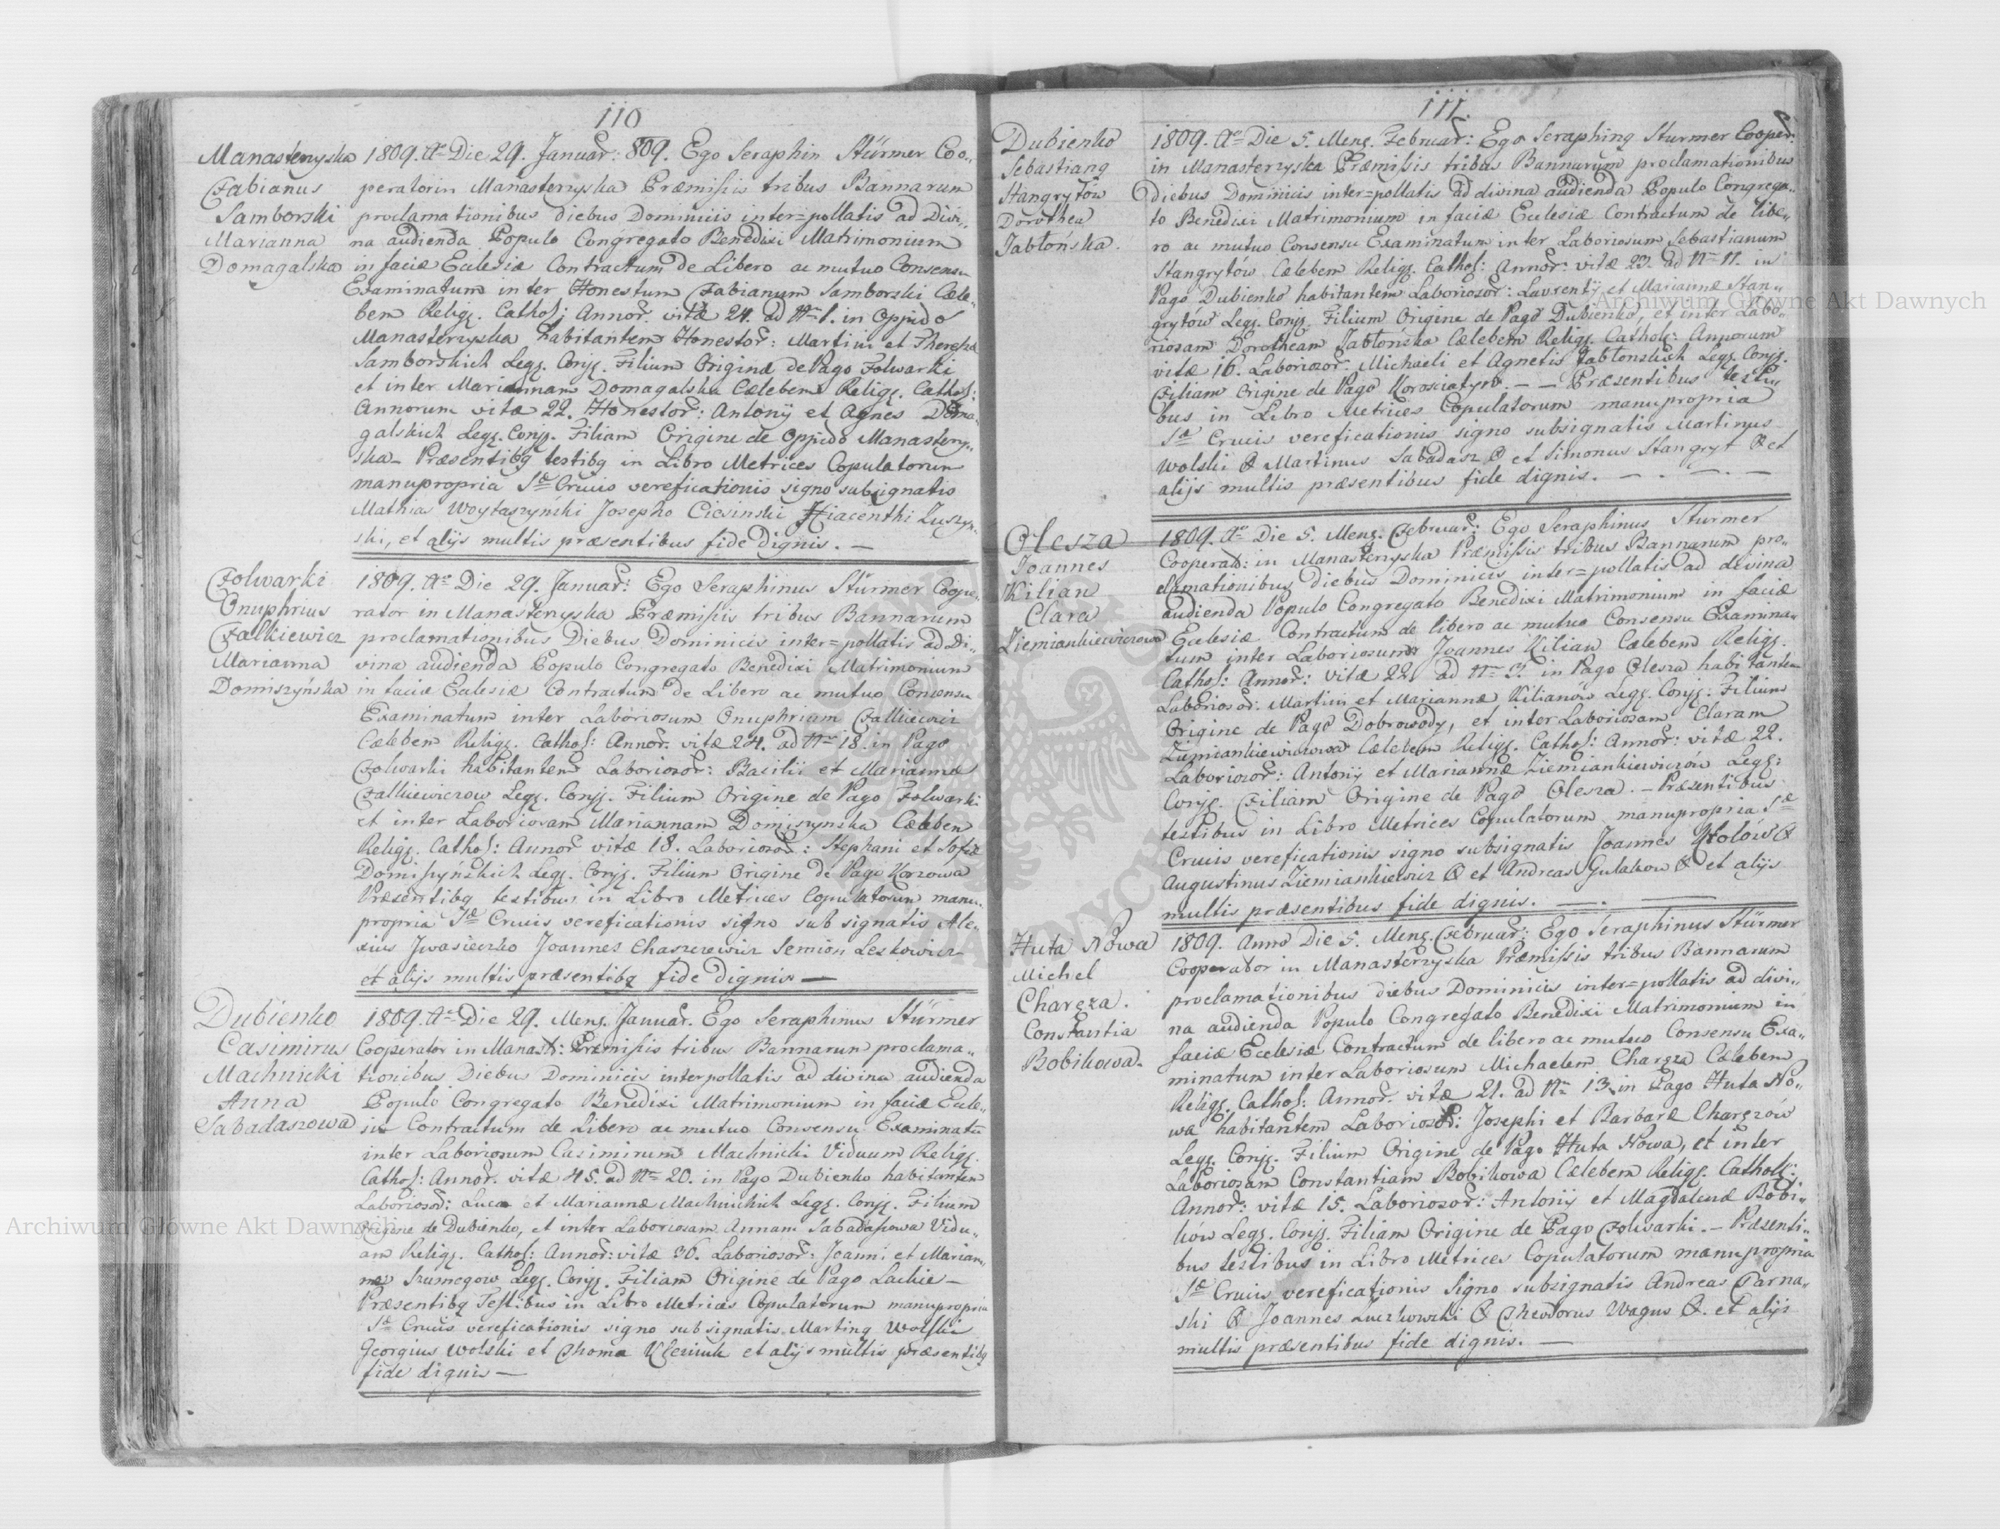 110
Manasterzyska
Fabianus
Samborski
Marianna
Domagalska
1809. Ao Die 29. Januar: 809. Ego Seraphin Stürmer Coo-
peratorin Manasterzyska Præmissis tribus Bannarum
proclamationibus diebus Dominicis inter=pollatis ad Divi-
na audienda Populo Congregato Benedixi Matrimonium
in faciæ Eclesiæ Contractum de Libero ac mutuo Consensu
Examinatum inter Honestum Fabianum Samborski Cæle-
bem Religs. Cathol: Annor. vitæ 24. ad Nro 1. in Oppido
Manasterzyska habitantem Honestor: Martini et Theresæ
Samborskich Legs. Conjs. Filium Originæ de Pago Folwarki
et inter Mariannam Domagalska Cælebem Religs. Cathol:
Annorum vitæ 22. Honestor: Antonÿ et Agnes Doma-
galskich Legs. Conjs. Filiam Origine de Oppido Manasterzy-
ska_ Præsentibq testibq in Libro Metrices Copulatorum
manupropria Sæ Crucis vereficationis signo subsignatis
Mathias Woytaszyński Josepho Ciesinski Hiacenthi Luszyn-
ski, et alijs multis præsentibus fide Dignis. —
Folwarki
Onuphrius
Falkiewicz
Marianna
Domiszyńska
1809. Ao Die 29. Januar: Ego Seraphinus Stürmer Coope-
rator in Manasterzyska Præmissis tribus Bannarum
proclamationibus Diebus Dominicis inter=pollatis ad Di-
vina audienda Populo Congregato Benedixi Matrimonium
in faciæ Eclesiæ Contractum de Libero ac mutuo Consensu
Examinatum inter Laboriosum Onuphrium Falkiewicz
Cælebem Religs. Cathol: Annor. vitæ 24. ad Nro 18. in Pago
Folwarki habitantem Laboriosor: Basilii et Mariannæ
Falkiewiczow Legs. Conjs. Filium Origine de Pago Folwarki
et inter Laboriosam Mariannam Domiszynska Cæleben
Religs. Cathol: Annor vitæ 18. Laboriosor: Stephani et Sofiæ
Domiszyńskich Legs. Conjs. Filium Origine de Pago Korzowa
Præsentibq testibus in Libro Metrices Copulatorum manu-
propria Sæ Crucis vereficationis signo sub signatis Ale-
xius Iwasieczko Joannes Chaszczewicz Semion Leskowicz
et alijs multis præsentibq fide dignis —
Dubienko
Casimirus
Machnicki
Anna
Sabadaszowa
1809. Ao Die 29. Mens. Januar. Ego Seraphinus Stürmer
Cooperator in Manast: Præmissis tribus Bannarun proclama-
tionibus Diebus Dominicis interpollatis ad divina audienda
Populo Congregato Benedixi Matrimonium in faciæ Ecle-
siæ Contractum de Libero ac mutuo Consensu Examinatū
inter Laboriosum Casimirum Machnicki Viduum Religs.
Cathol: Annor. vitæ 45. ad Nro 20. in Pago Dubienko habitantem
Laboriosor: Luca et Mariannæ Machnickich Legs. Conjs. Filium
Origine de Dubienko, et inter Laboriosam Annam Sabadaszowa Vidu-
am Religs. Cathol: Annor: vitæ 36. Laboriosor: Joanni et Marian-
næ Szumegow Legs. Conjs. Filiam Origine de Pago Lackie_
Præsentibq Testibus in Libro Metrices Copulatorum manupropria
Sæ Crucis vereficationis signo sub signatis Martinq Wolski
Georgius Wolski et Thoma et alijs multis præsentibq
fide dignis —
111.
Dubienko
Sebastianq
Stangrytów
Dorothea
Jabłońska.
1809. Ao Die 5. Mens. Februar: Ego Seraphinq Stürmer Cooper:
in Manasterzyska Præmissis tribus Bannarum proclamationibus
Diebus Dominicis inter=pollatis ad divina audienda Populo Congrega-
to Benedixi Matrimonium in faciæ Eclesiæ Contractum de libe-
ro ac mutuo Consensu Examinatum inter Laboriosum Sebastianum
Stangrytów Cælebem Religs. Cathol: Annor: vitæ 23. ad Nro 11. in
Pago Dubienko habitantem Laboriosor: Laurentÿ et Mariannæ Stan-
grytów Legs. Conjs. Filium Origine de Pago Dubienko, et inter Labo-
riosam Dorotheam Jabłońska Cælebem Religs. Cathol: Annorum
vitæ 16. Laboriosor: Michaeli et Agnetis Jabłonskich Legs. Conjs.
Filiam Origine de Pago Korosciatyn. — — Præsentibus testi-
bus in Libro Metrices Copulatorum manupropria
Sæ Crucis vereficationis signo subsignatis Martinus
Wolski & Martinus Sabadasz & et Simonus Stangryt & et
alijs multis præsentibus fide dignis. —
Olesza
Joannes
Kilian
Clara
Ziemiankiewiczowa
1809. Ao Die 5. Mens. Februar: Ego Seraphinus Sturmer
Cooperat: in Manasterzyska Præmissis tribus Bannarum pro-
clamationibus diebus Dominicis inter=pollatis ad divina
audienda Populo Congregato Benedixi Matrimonium in faciæ
Eclesiæ Contractum de libero ac mutuo Consensu Examina-
tum inter Laboriosum Joannes Kilian Cælebem Religs.
Cathol: Annor: vitæ 22. ad Nro 3. in Pago Olesza habitantem
Laboriosor: Martini et Mariannæ Kilianow Legs. Conjs. Filium
Origine de Pago Dobrowody, et inter Laboriosam Claram
Ziemiankiewiczowa Cælebem Religs. Cathol: Annor: vitæ 22.
Laboriosor: Antonÿ et Mariannæ Ziemiankiewiczów Legs:
Conjs. Filiam Origine de Pago Olesza. — Præsentibus
testibus in Libro Metrices Copulatorum manupropria Sæ
Crucis vereficationis signo subsignatis Joannes Wołów &
Augustinus Ziemiankiewicz & et Andreas Gulakow & et alijs
multis præsentibus fide dignis. — . —
Huta Nowa
Michel
Charęza.
Constantia
Bobikowa.
1809. Anno Die 5. Mens. Februar: Ego Seraphinus Stürmer
Cooperator in Manasterzyska Præmissis tribus Bannarum
proclamationibus diebus Dominicis inter=pollatis ad divi-
na audienda Populo Congregato Benedixi Matrimonium in
faciæ Eclesiæ Contractum de libero ac mutuo Consensu Exa-
minatum inter Laboriosum Michaelem Charęza Cælebem
Religs. Cathol: Annor. vitæ 21. ad Nro 13. in Pago Huta No-
wa habitantem Laboriosor: Josephi et Barbaræ Charęzów
Legs. Conjs. Filium Origine de Pago Huta Nowa, et inter
Laboriosam Constantiam Bobikowa Cælebem Religs. Cathol:
Annor: vitæ 15. Laboriosor: Antonÿ et Magdalenæ Bobi-
ków Legs. Conjs. Filiam Origine de Pago Folwarki. — Præsenti-
bus testibus in Libro Metrices Copulatorum manupropria
Sæ Crucis vereficationis signo subsignatis Andreas Tarna-
ski & Joannes Luczkowski & Theodorus Wagus & et alijs
multis præsentibus fide dignis. —
Archiwum Główne Akt Dawnych
Archiwum Główne Akt Dawnych